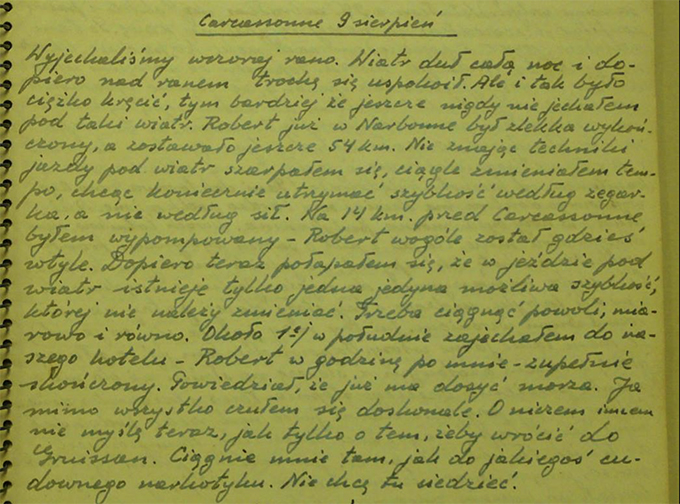 Carcassonne 9 sierpień
Wyjechaliśmy wczoraj rano. Wiatr duł całą noc i do-
piero nad ranem trochę się uspokoił. Ale i tak było
ciężko kręcić, tym bardziej że jeszcze nigdy nie jechałem
pod taki wiatr. Robert już w Narbonne był zlekka wykoń-
czony, a zostawało jeszcze 54 km. Nie znając techniki
jazdy pod wiatr szarpałem się, ciągle zmieniałem tem-
po, chcąc koniecznie utrzymać szybkość według zegar-
ka, a nie według sił. Na 14 km. przed Carcassonne
byłem wypompowany – Robert wogóle został gdzieś
wtyle. Dopiero teraz połapałem się, że w jeździe pod
wiatr istnieje tylko jedna jedyna możliwa szybkość,
której nie należy zmieniać. Trzeba ciągnąć powoli, mia-
rowo i równo. Około 1ej w południe zajechałem do na-
szego hotelu – Robert w godzinę po mnie – zupełnie
skończony. Powiedział, że już ma dosyć morza. Ja
mimo wszystko czułem się doskonale. O niczem innem
nie myślę teraz, jak tylko o tem, żeby wrócić do
Gruissan. Ciągnie mnie tam, jak do jakiegoś cu-
downego narkotyku. Nie chcę tu siedzieć.